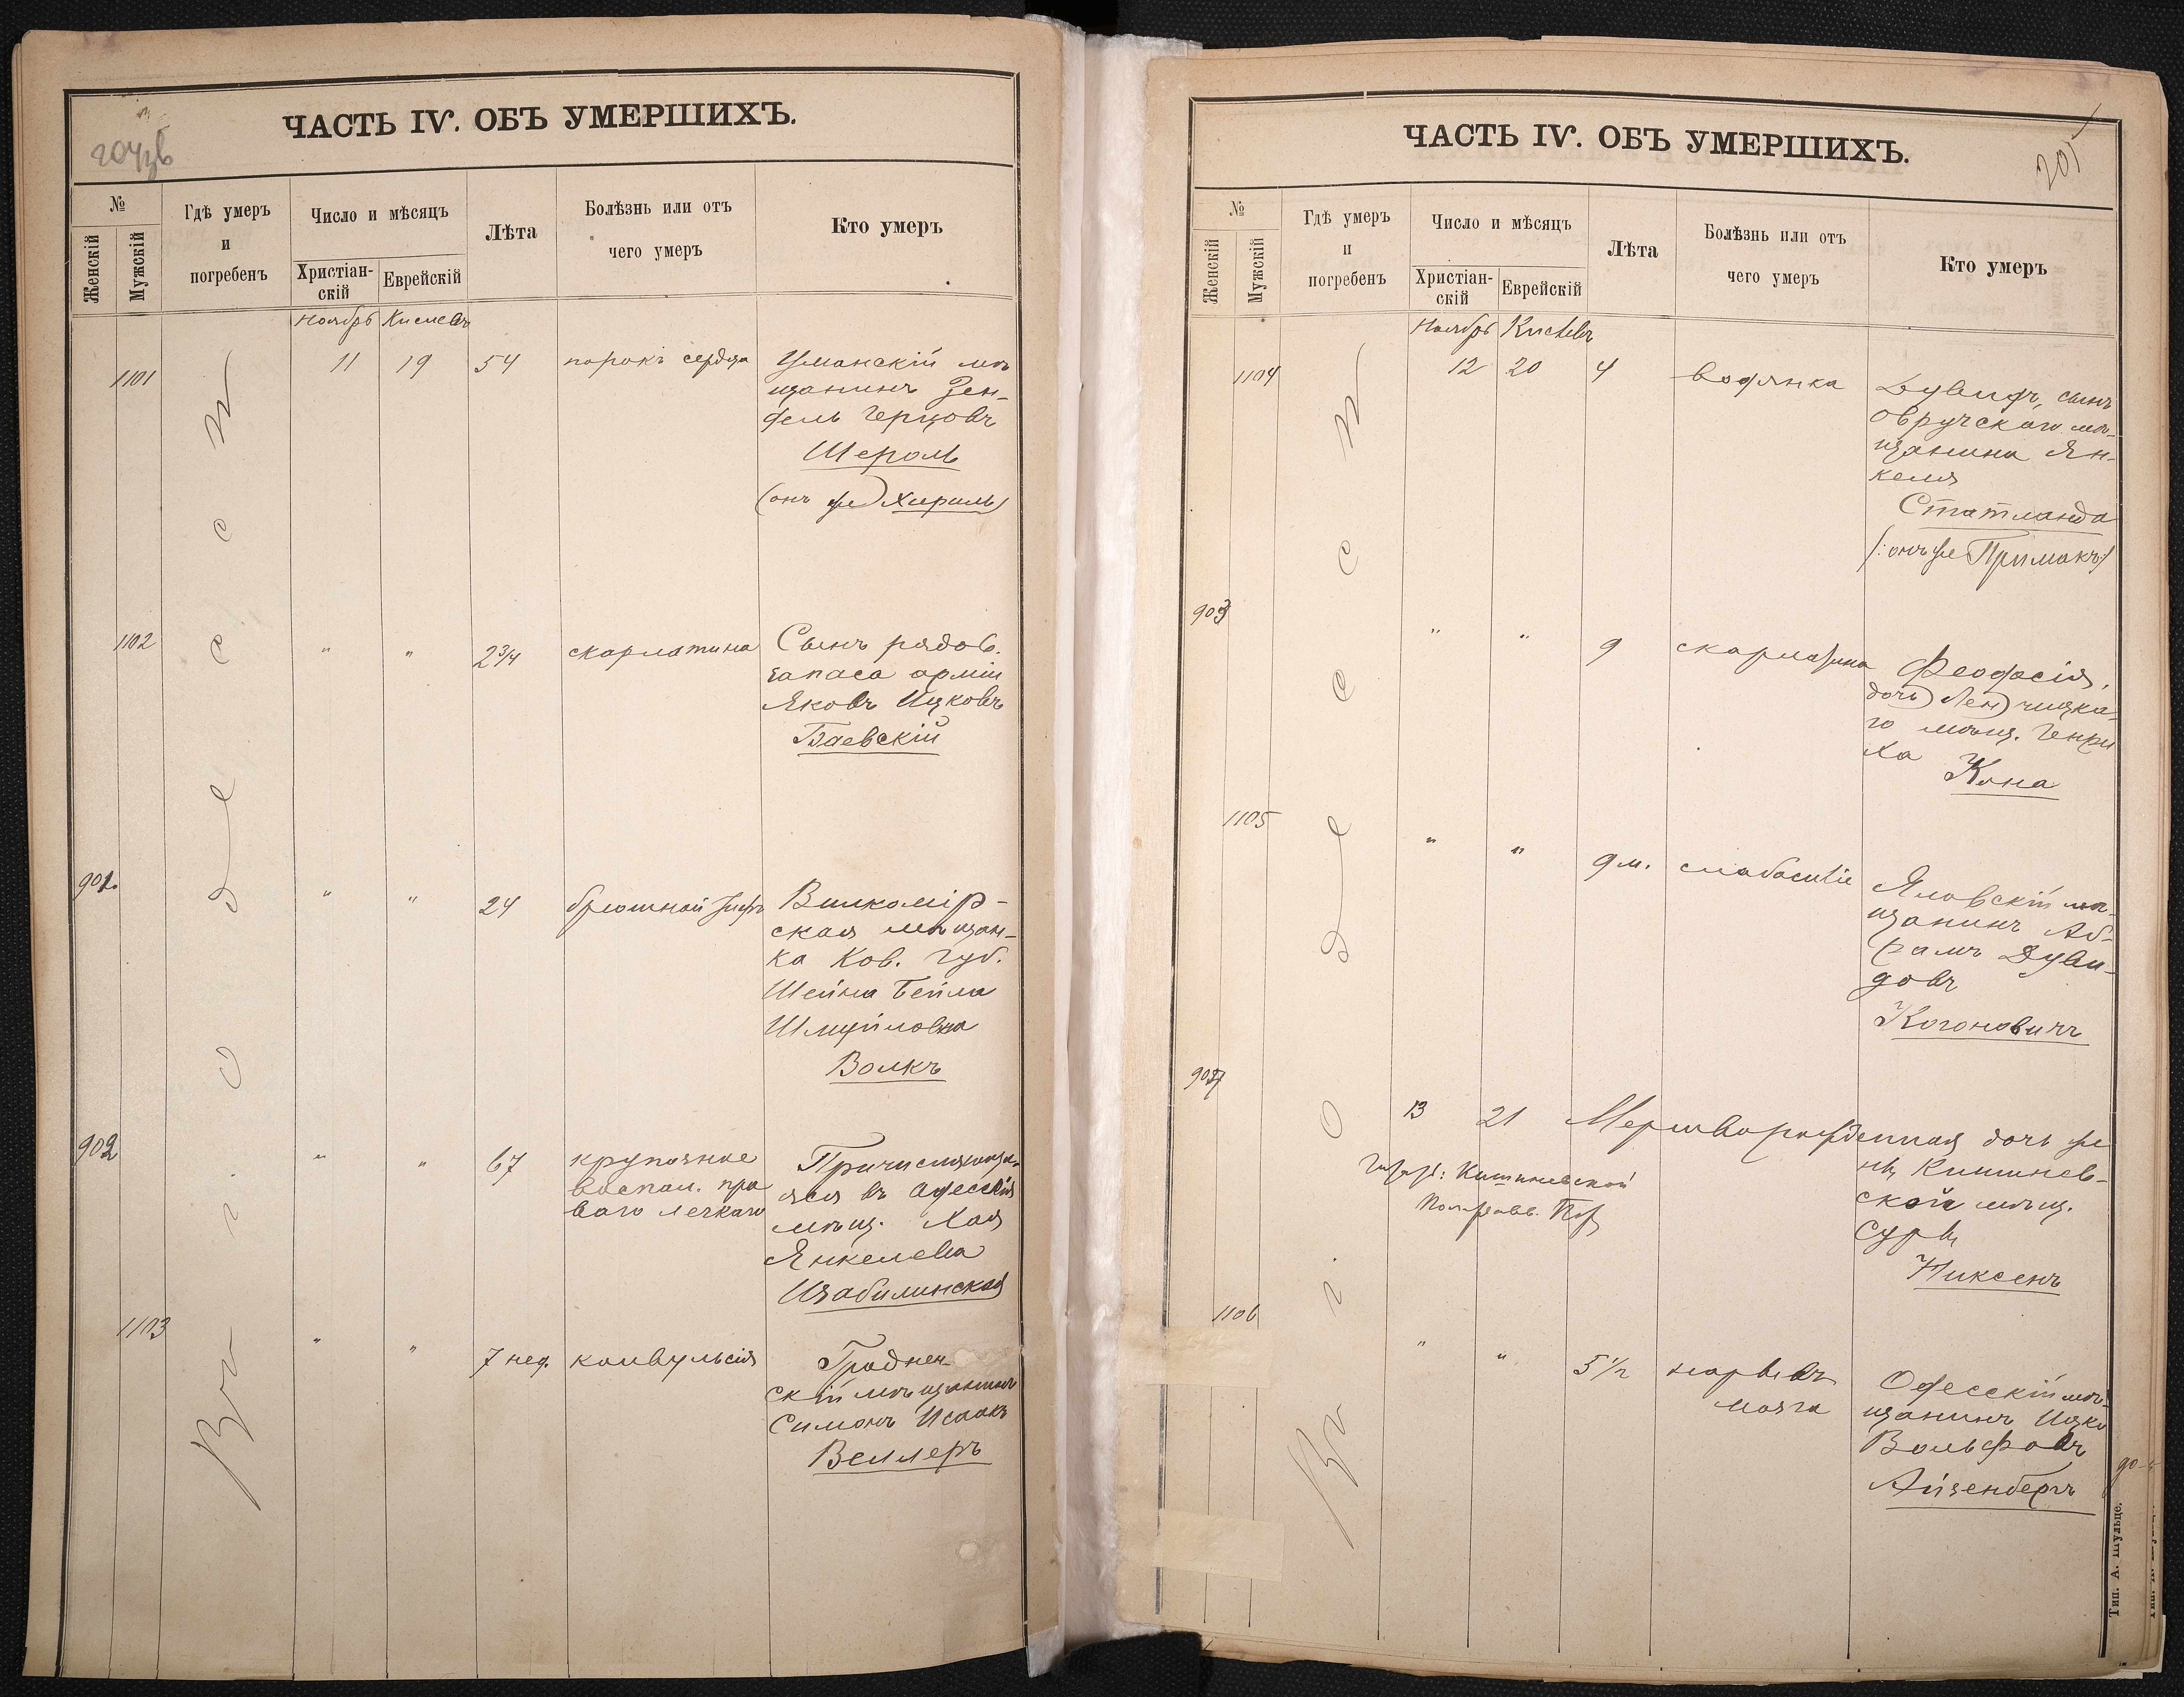 ЧАСТЬ IV. ОБЪ УМЕРШИХЪ.
204об
№
Женскій
Мужскій
Гдѣ умеръ
и
погребенъ
Число и мѣсяцъ
Христіан-
скій
Еврейскій
Лѣта
Болѣзнь или отъ
чего умеръ
Кто умеръ
Ноябрь Кислевъ
Въ г. Одессѣ
1101
11 19 54 порокъ сердца
Уманскій мѣ
щанинъ Зен-
дель Герцовъ
Шероль
(онъ же Хироль)
1102
" " 2¾ скарлатина
Сынъ рядов.
запаса арміи
Яковъ Ицковъ
Баевскій
901.
" " 24 брюшной тифъ
Вилкомір-
ская мѣщан-
ка Ков. губ.
Шейна Бейла
Шмуйловна
Волкъ
902
" " 67 крупозное
воспал. пра
ваго легкаго
Причисляюща-
яся въ Одесскія
мѣщ. Хая
Янкелева
Изабилинская
1103
" " 7 нед. конвульсія
Гроднен-
скій мѣщанинъ
Симонъ Исаакъ
Веллеръ
ЧАСТЬ IV. ОБЪ УМЕРШИХЪ.
205
№
Женскій
Мужскій
Гдѣ умеръ
и
погребенъ
Число и мѣсяцъ
Христіан-
скій
Еврейскій
Лѣта
Болѣзнь или отъ
чего умеръ
Кто умеръ
Ноябрь Кислевъ
Въ г. Одессѣ
1104
12 20 4 водянка
Дувидъ, сынъ
Овручскаго мѣ-
щанина Ян-
келя
Статланда
(: онъ же Примакъ :)
903
" " 9 скарлатина
Феодосія,
дочь Ленчицка-
го мѣщ. Генри
ха
Кона
1105
" " 9 м. слабосиліе
Яловскій мѣ-
щанинъ Аб-
рамъ Дуви-
довъ
Когоновичъ
904
13 21 Мертворожденная дочь же
ны Кишинев-
ской мѣщ.
Суры
Никсенъ
Кишиневской
1106
" " 5½ нарывъ
мозга
Одесскій мѣ-
щанинъ Ицко
Вольфовъ
Айзенбергъ
Тип. А. Шульце.